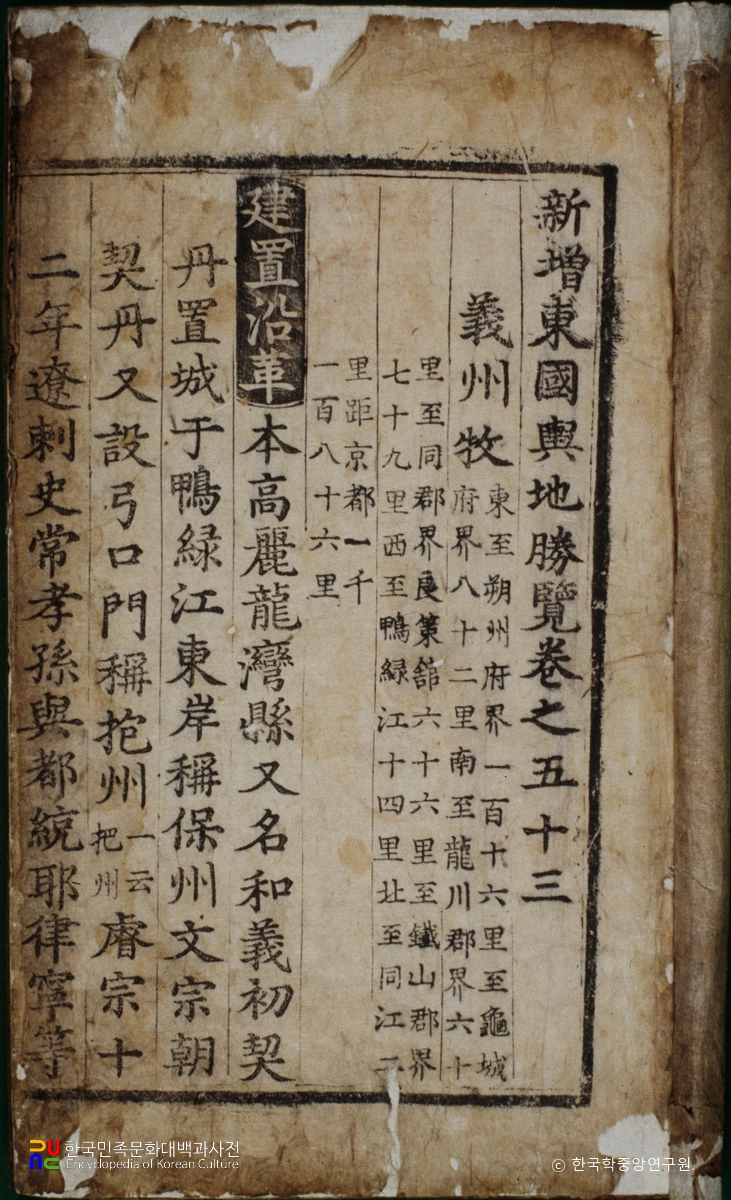 新增東國輿地勝覽卷之五十三
義州牧 東至朔州府界一百十六里至龜城
府界八十二里南至龍川郡界六十
里至同郡界良策舘六十六里至鐵山郡界
七十九里西至鴨綠江十四里北至同江二
里距京都一千
一百八十六里
建置沿革 本高麗龍灣縣又名和義初契
丹置城于鴨綠江東岸稱保州文宗朝
契丹又設弓口門稱抱州 一云把州 睿宗十
二年遼刺史常孝孫與都統耶律寧等
한국민족문화대백과사전
Encyclopedia of Korean Culture
© 한국학중앙연구원.